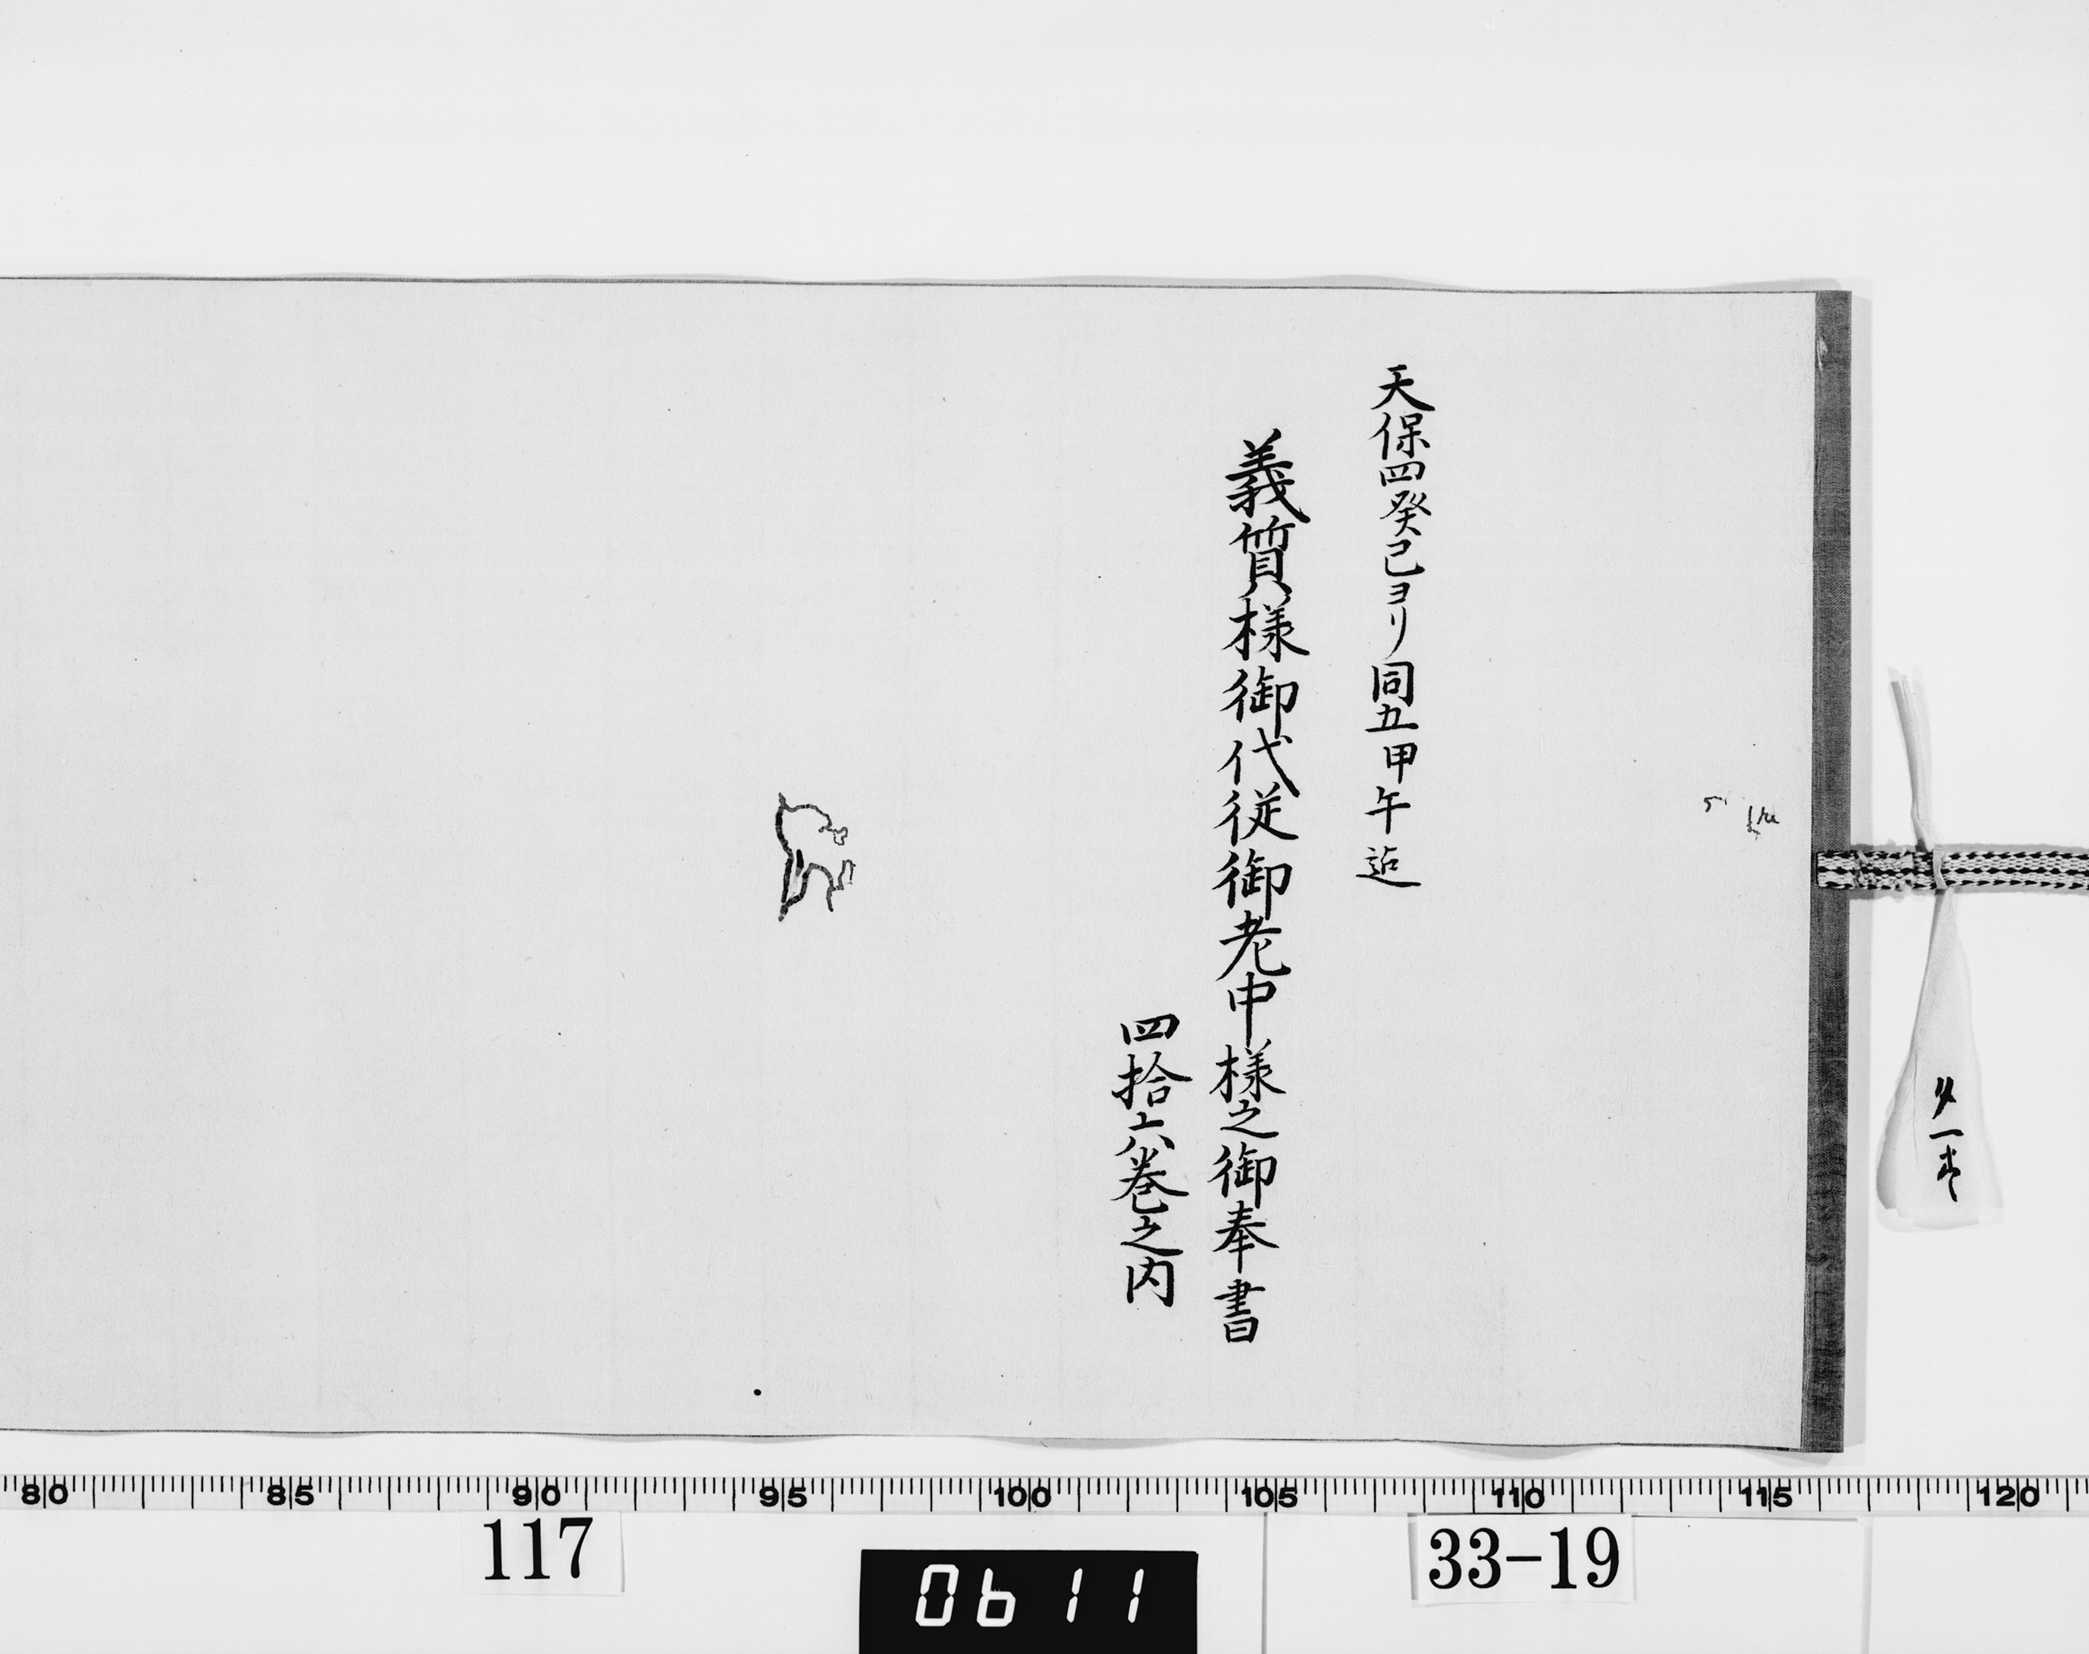 天保四癸巳ヨリ同五甲午迠
義質様御代従御老中様之御奉書
四拾六巻之内
80 85 90 95 100 105 110 115 120
117
0611
33-19